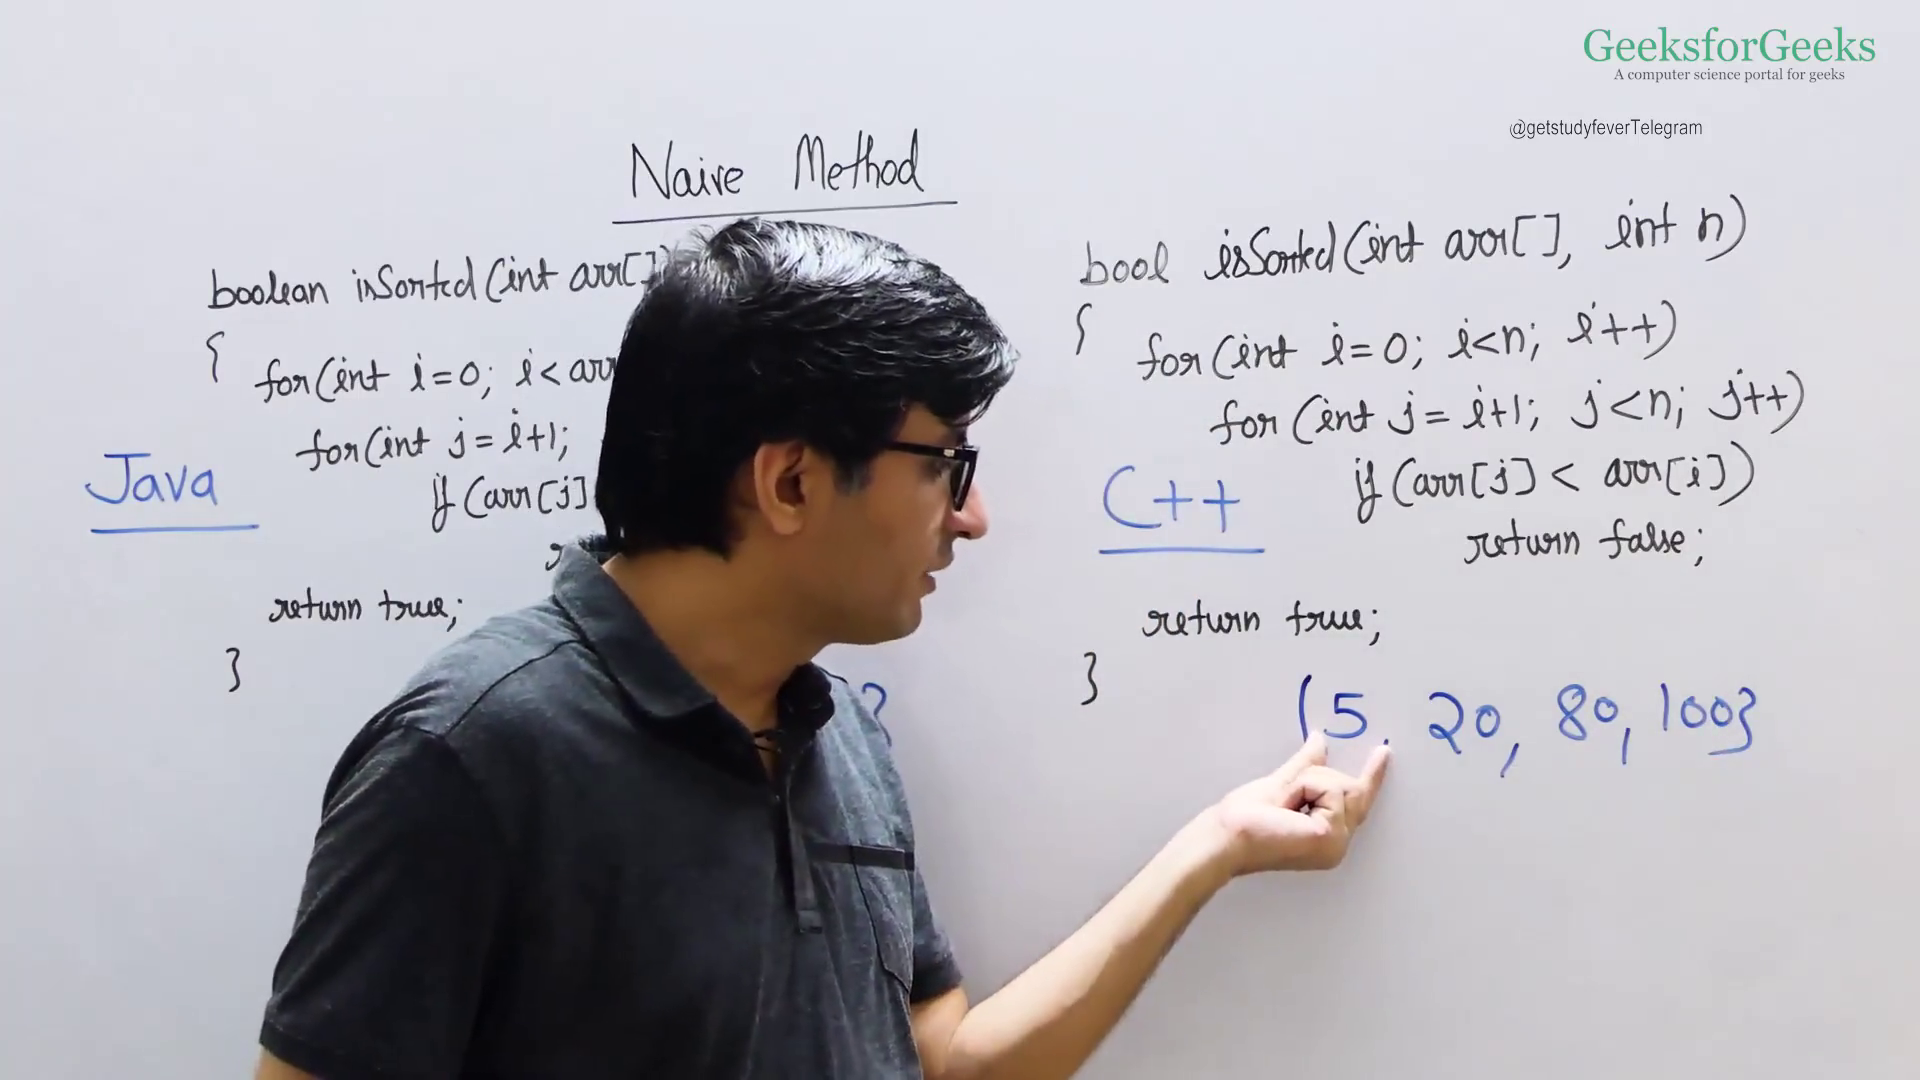 GeeksforGeeks
A computer science portal for geeks
@getstudyfeverTelegram
Naive Method
boolean isSorted(int arr[])
{
for(int i=0; i<arr
for(int j=i+1;
if(arr[j]
return true;
}
Java
}
bool isSorted(int arr[], int n)
{
for(int i=0; i<n; i++)
for(int j=i+1; j<n; j++)
if(arr[j] < arr[i])
return false;
return true;
}
C++
{5, 20, 80, 100}